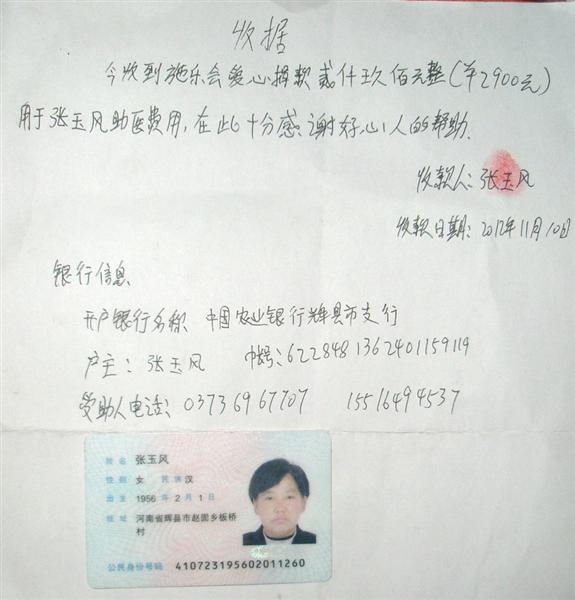 收据
今收到施乐会爱心捐款贰仟玖佰元整(￥2900元)
用于张玉风助医费用,在此十分感谢好心人的帮助.
收款人:张玉风
收款日期:2012年11月10日
银行信息
开户银行名称 中国农业银行辉县市支行
户主:张玉风 帐号:6228481362401159119
受助人电话:03736967707 15516494537
姓名 张玉风
性别 女 民族 汉
出生 1956年2月1日
住址 河南省辉县市赵固乡板桥
村
公民身份号码 410723195602011260